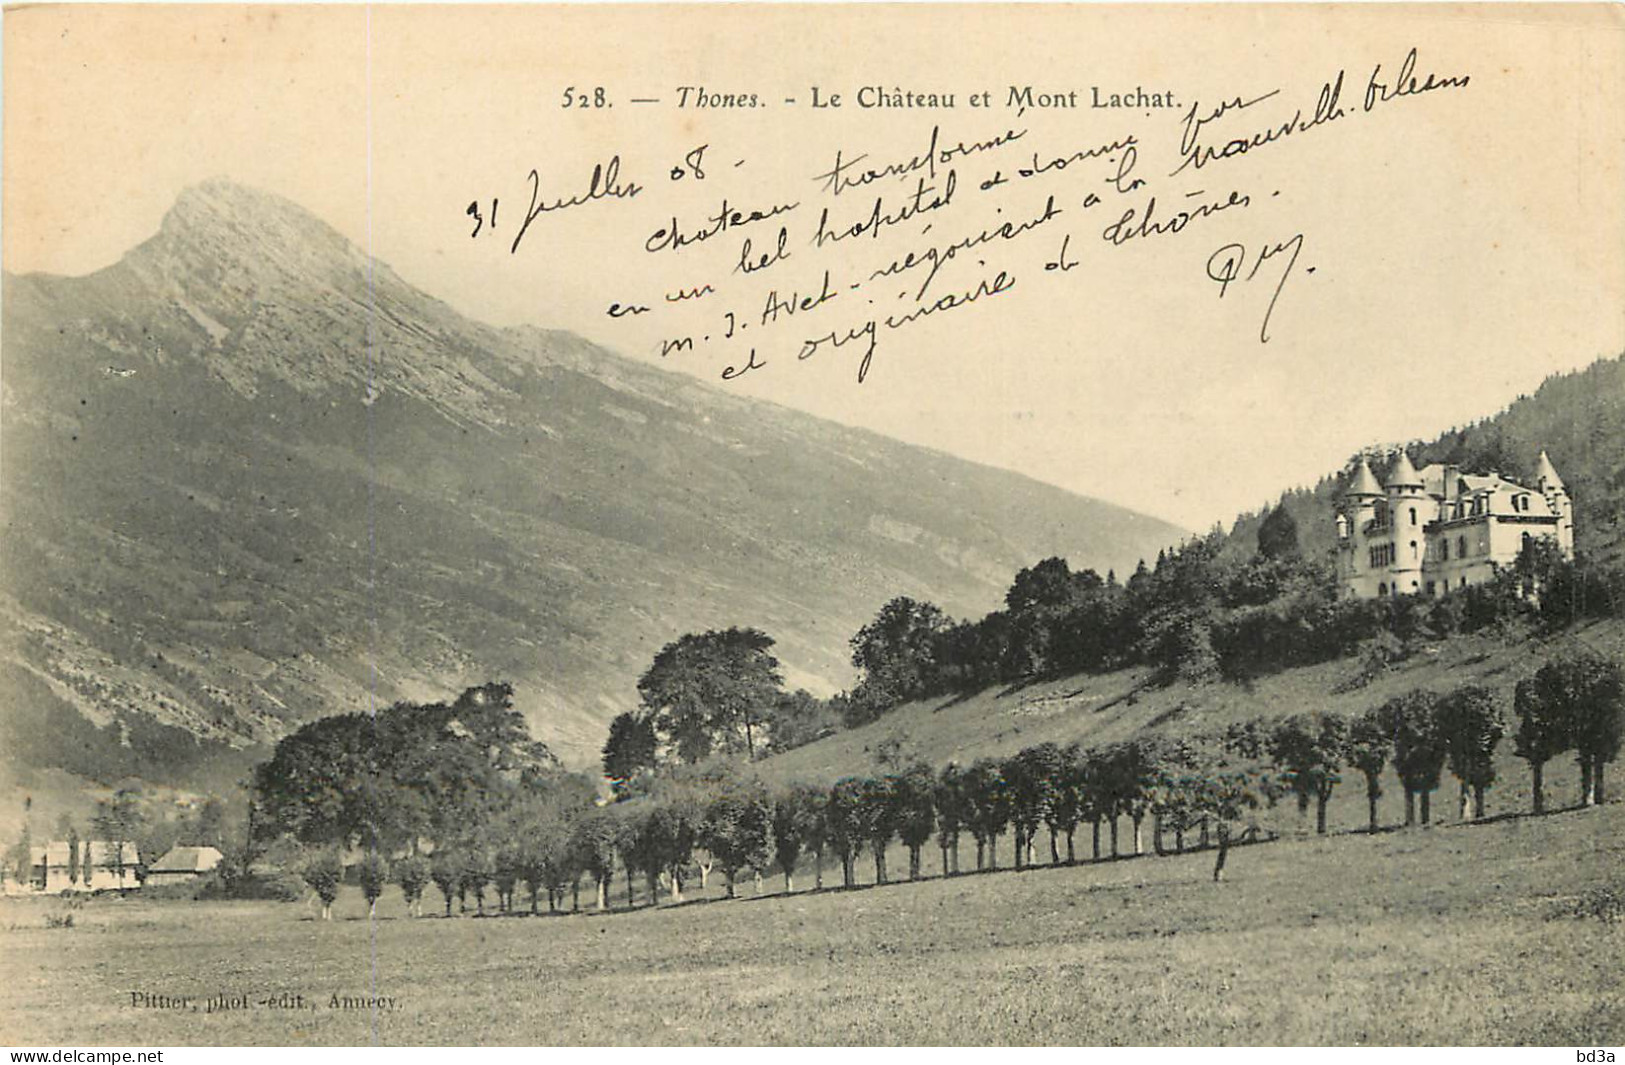 528. — Thones. - Le Château et Mont Lachat.
31 Juillet 08 -
Chateau transformé
en un bel hopital et donné par
m. J. Avet - négociant à la Nouvelle. Orléans
et originaire de Thônes.
Pittier, phot.-édit., Annecy.
www.delcampe.net
bd3a